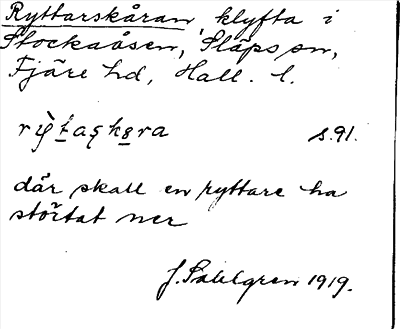 Ryttarskåran klyfta i
Stockaåsen, Släps sn,
Fjäre hd, Hall. l.
s. 91.
där skall en ryttare ha
störtat ner
J. Sahlgren 1919.